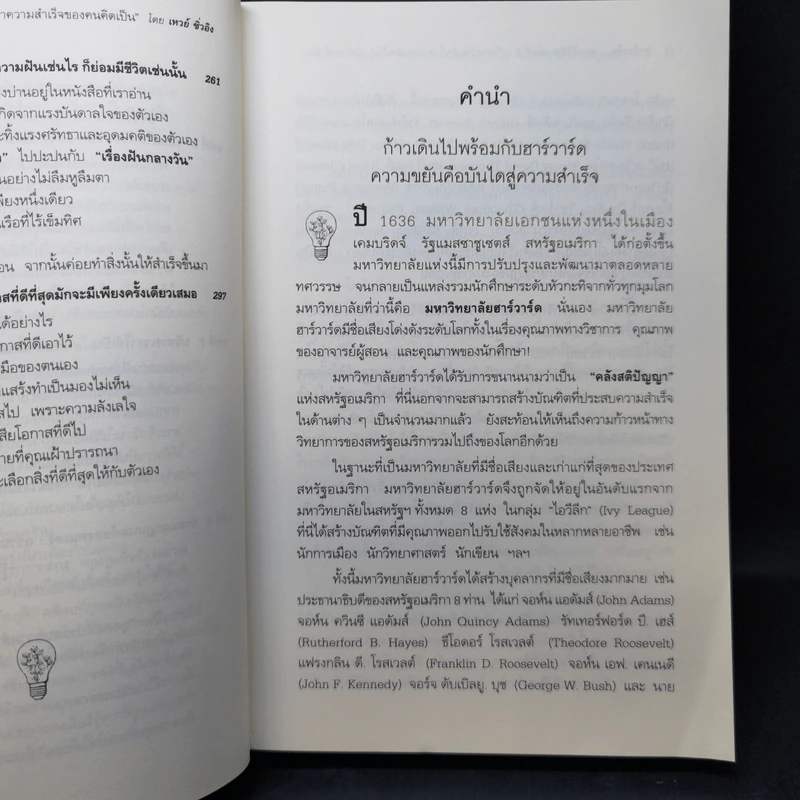 าความสำเร็จของคนคิดเป็น" โดย เหวย์ ซิ่วอิง
วามฝันเช่นไร ก็ย่อมมีชีวิตเช่นนั้น 261
งบ่านอยู่ในหนังสือที่เราอ่าน
กิดจากแรงบันดาลใจของตัวเอง
ะทิ้งแรงศรัทธาและอุดมคติของตัวเอง
" ไปปะปนกับ "เรื่องฝันกลางวัน"
นอย่างไม่ลืมหูลืมตา
พียงหนึ่งเดียว
เรือที่ไร้เข็มทิศ
อน จากนั้นค่อยทำสิ่งนั้นให้สำเร็จขึ้นมา
าสที่ดีที่สุดมักจะมีเพียงครั้งเดียวเสมอ 297
ด้อย่างไร
กาสที่ดีเอาไว้
มือของตนเอง
แสร้งทำเป็นมองไม่เห็น
สไป เพราะความลังเลใจ
สียโอกาสที่ดีไป
ายที่คุณเฝ้าปรารถนา
ะเลือกสิ่งที่ดีที่สุดให้กับตัวเอง
คำนำ
ก้าวเดินไปพร้อมกับฮาร์วาร์ด
ความขยันคือบันไดสู่ความสำเร็จ
ปี 1636 มหาวิทยาลัยเอกชนแห่งหนึ่งในเมือง
เคมบริดจ์ รัฐแมสซาชูเซตส์ สหรัฐอเมริกา ได้ก่อตั้งขึ้น
มหาวิทยาลัยแห่งนี้มีการปรับปรุงและพัฒนามาตลอดหลาย
ทศวรรษ จนกลายเป็นแหล่งรวมนักศึกษาระดับหัวกะทิจากทั่วทุกมุมโลก
มหาวิทยาลัยที่ว่านี้คือ มหาวิทยาลัยฮาร์วาร์ด นั่นเอง มหาวิทยาลัย
ฮาร์วาร์ดมีชื่อเสียงโด่งดังระดับโลกทั้งในเรื่องคุณภาพทางวิชาการ คุณภาพ
ของอาจารย์ผู้สอน และคุณภาพของนักศึกษา!
มหาวิทยาลัยฮาร์วาร์ดได้รับการขนานนามว่าเป็น "คลังสติปัญญา"
แห่งสหรัฐอเมริกา ที่นี่นอกจากจะสามารถสร้างบัณฑิตที่ประสบความสำเร็จ
ในด้านต่าง ๆ เป็นจำนวนมากแล้ว ยังสะท้อนให้เห็นถึงความก้าวหน้าทาง
วิทยาการของสหรัฐอเมริการวมไปถึงของโลกอีกด้วย
ในฐานะที่เป็นมหาวิทยาลัยที่มีชื่อเสียงและเก่าแก่ที่สุดของประเทศ
สหรัฐอเมริกา มหาวิทยาลัยฮาร์วาร์ดจึงถูกจัดให้อยู่ในอันดับแรกจาก
มหาวิทยาลัยในสหรัฐฯ ทั้งหมด 8 แห่ง ในกลุ่ม "ไอวีลีก" (Ivy League)
ที่นี่ได้สร้างบัณฑิตที่มีคุณภาพออกไปรับใช้สังคมในหลากหลายอาชีพ เช่น
นักการเมือง นักวิทยาศาสตร์ นักเขียน ฯลฯ
ทั้งนี้มหาวิทยาลัยฮาร์วาร์ดได้สร้างบุคลากรที่มีชื่อเสียงมากมาย เช่น
ประธานาธิบดีของสหรัฐอเมริกา 8 ท่าน ได้แก่ จอห์น แอดัมส์ (John Adams)
จอห์น ควินซี แอดัมส์ (John Quincy Adams) รัทเทอร์ฟอร์ด บี. เฮส์
(Rutherford B. Hayes) ธีโอดอร์ โรสเวลต์ (Theodore Roosevelt)
แฟรงกลิน ดี. โรสเวลต์ (Franklin D. Roosevelt) จอห์น เอฟ. เคนเนดี
(John F. Kennedy) จอร์จ ดับเบิลยู. บุช (George W. Bush) และ นาย